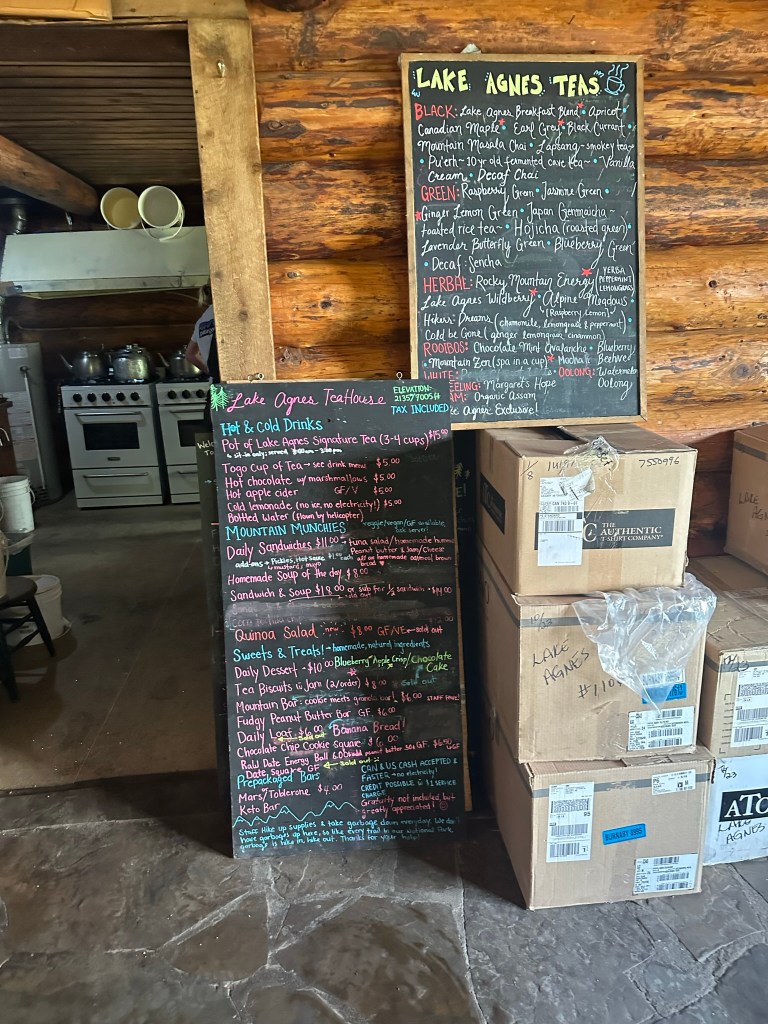 LAKE AGNES TEAS
BLACK: Lake Agnes Breakfast Blend • Apricot •
Canadian Maple • Earl Grey • Black Currant •
Mountain Masala Chai • Lapsang ~ smokey tea ~
• Pu'erh ~ 10 yr old fermented cave tea ~ • Vanilla
Cream • Decaf Chai
GREEN: Raspberry Green • Jasmine Green •
Ginger Lemon Green • Japan Genmaicha ~
toasted rice tea ~ • Hojicha (roasted green) •
Lavender Butterfly Green • Blueberry Green
• Decaf: Sencha
HERBAL: Rocky Mountain Energy (YERBA PEPPERMINT LEMONGRASS)
Lake Agnes Wildberry • Alpine Meadows •
(Raspberry Lemon)
Hikers Dreams (chamomile, lemongrass & peppermint)
Cold be Gone (ginger lemongrass cinnamon)
ROOIBOS: Chocolate Mint Avalanche • Blueberry
• Mountain Zen (spa in a cup) Macha Beehive
WHITE: OOLONG: Watermelon
EELING: Margaret's Hope Oolong
AM: Organic Assam
e Agnes Exclusive!
Lake Agnes TeaHouse
ELEVATION:
2135m/7005ft
TAX INCLUDED
Hot & Cold Drinks
Pot of Lake Agnes Signature Tea (3-4 cups) $15.00
sit in only: served
Togo Cup of Tea - see drink menu $5.00
Hot chocolate w/ marshmallows $5.00
Hot apple cider GF/V $5.00
Cold lemonade (no ice, no electricity!) $5.00
Bottled Water (flown by helicopter)
MOUNTAIN MUNCHIES veggie/vegan/GF available, ask server!
Daily Sandwiches $11.00 → tuna salad/homemade hummus
Peanut butter & Jam/Cheese
add-ons → Pickles, Hot Sauce $1.00 each all on homemade oatmeal brown
mustard, mayo bread
Homemade Soup of the day $8.00
Sandwich & Soup $18.00 or sub for 1/2 sandwich $14.00
Quinoa Salad new $8.00 GF/VE ← sold out
Sweets & Treats! - homemade, natural ingredients
Daily Dessert - $10.00 Blueberry Apple Crisp/Chocolate
Cake
Tea Biscuits w Jam (2/order) $8.00 sold out
Mountain Bar: cookie meets granola bar! $6.00 STAFF FAVE!
Fudgy Peanut Butter Bar GF $6.00
Daily Loaf $6.00 Banana Bread!
sold out
Chocolate Chip Cookie Square $6.00
Raw Date Energy Ball 6.00 GF $6.50
Date Square GF ← sold out
Prepackaged Bars
Mars/Toblerone $4.00
Keto Bar
CAN & US CASH ACCEPTED &
FASTER - no electricity!
CREDIT POSSIBLE w SERVICE
CHARGE
Gratuity not included, but
greatly appreciated!
Staff hike up supplies & take garbage down everyday. We do
have garbages up here, so like every trail in our National Park,
garbage is hike in, take out. Thanks for your help!
7550996
THE
AUTHENTIC
T-SHIRT COMPANY
LAKE
AGNES
BURNABY
BURNABY
ATC
LAKE
AGNES